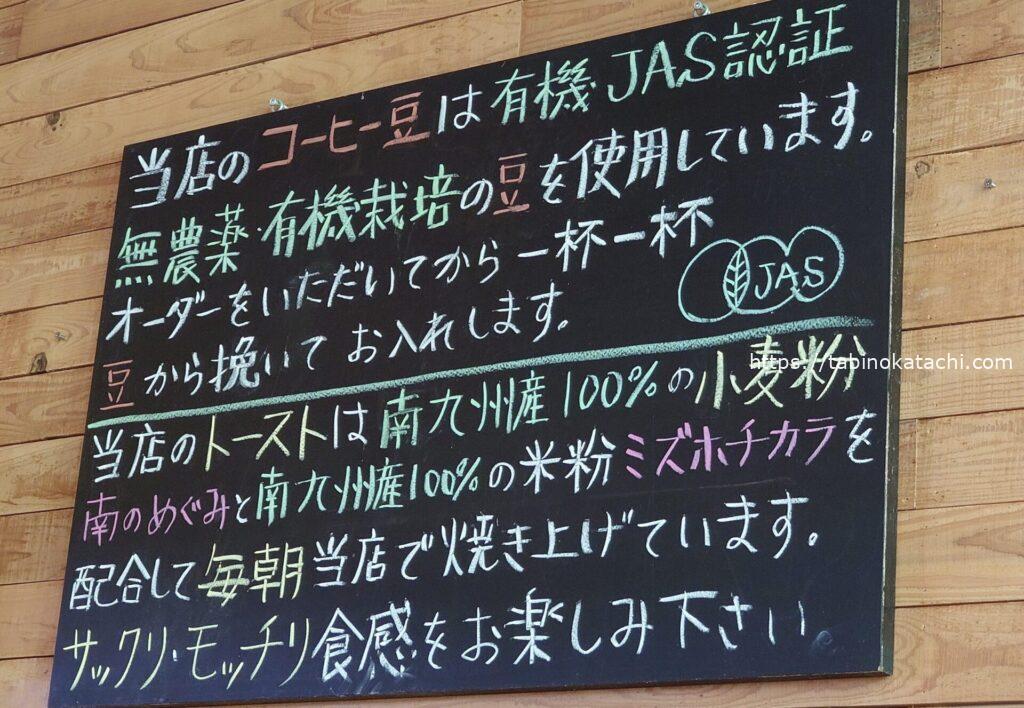 当店のコーヒー豆は有機JAS認証
無農薬・有機栽培の豆を使用しています。
オーダーをいただいてから一杯一杯
豆から挽いてお入れします。
JAS
https://tabinokatachi.com
当店のトーストは南九州産100%の小麦粉
南のめぐみと南九州産100%の米粉ミズホチカラを
配合して毎朝当店で焼き上げています。
サックリ・モッチリ食感をお楽しみ下さい